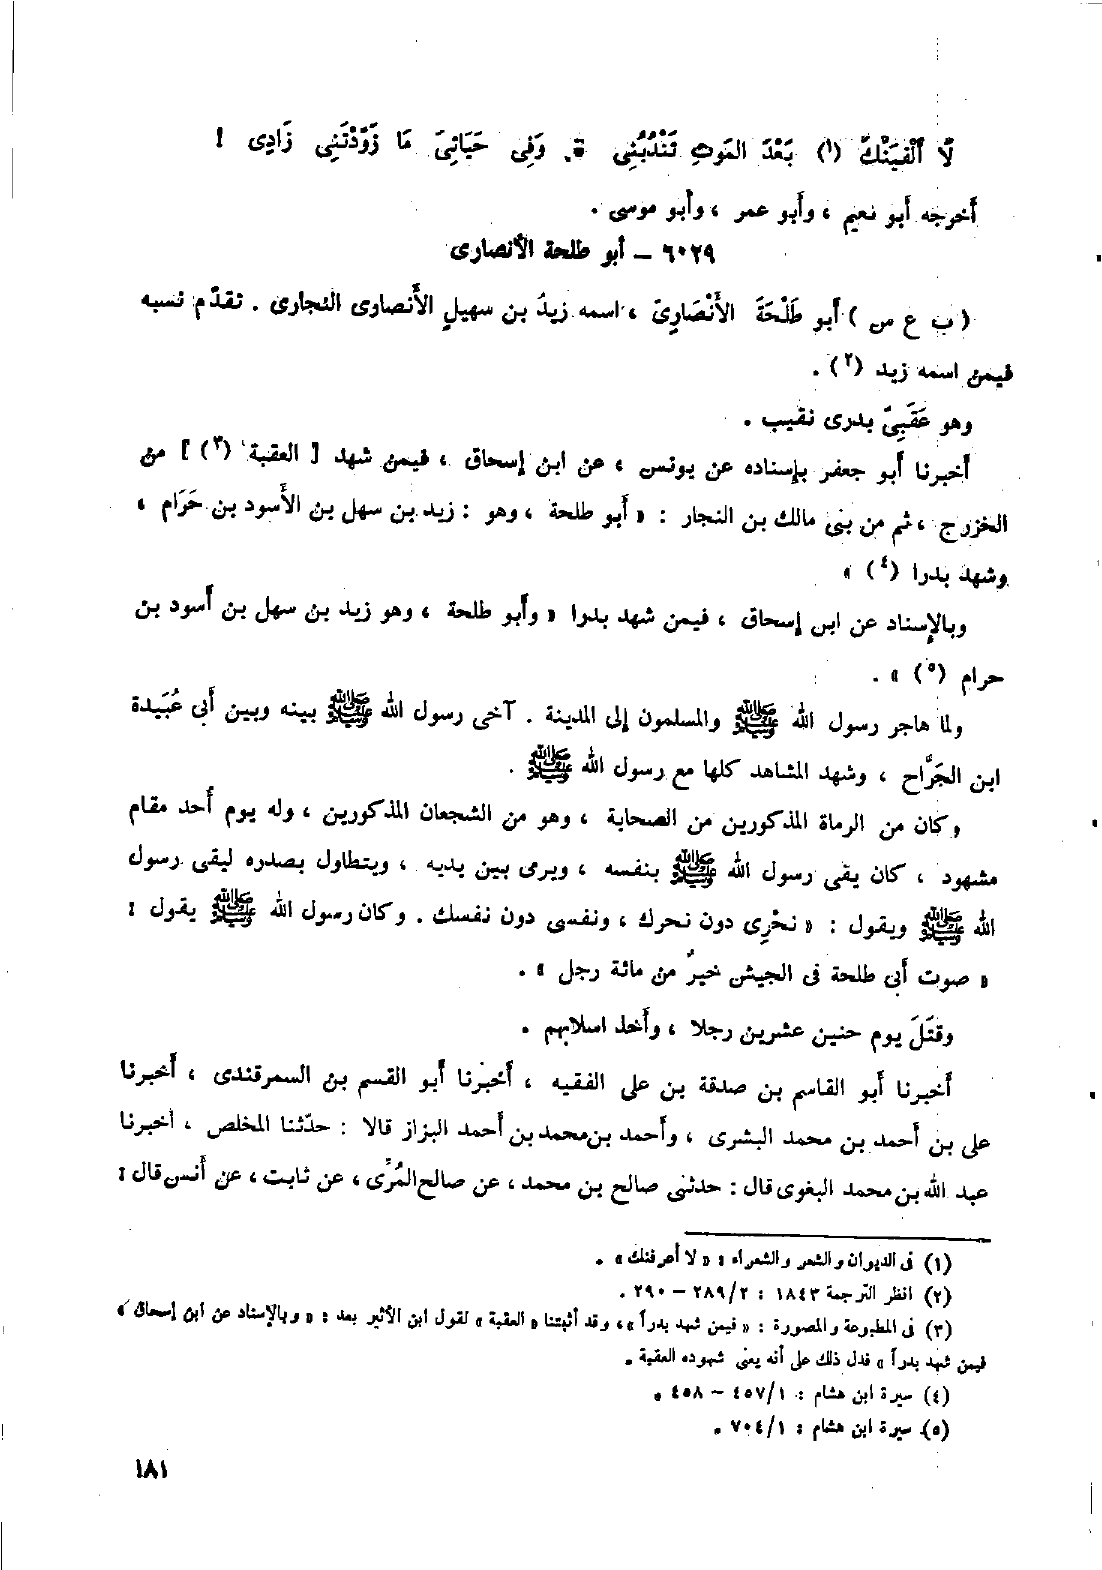 لَا أُلْفِيَنَّكَ (١) بَعْدَ المَوتِ تَنْدُبُنِى * وَفِى حَيَاتِىَ مَا زَوَّدْتَنِى زَادِى !
أخرجه أبو نعيم ، وأبو عمر ، وأبو موسى .
٦٠٢٩ – أبو طلحة الأنصارى
( ب ع س ) أَبو طَلْحَةَ الأَنْصَارِىّ ، اسمه زيدُ بن سهيلٍ الأَنصاوى النجارى . تقدّم نسبه
فيمن اسمه زيد (٢) .
وهو عَقَبِىّ بدرى نقيب .
أخبرنا أبو جعفر بإسناده عن يونس ، عن ابن إسحاق ، فيمن شهد [ العقبة (٣) ] من
الخزرج ، ثم من بنى مالك بن النجار : « أَبو طلحة ، وهو : زيد بن سهل بن الأَسود بن حَرَام ،
وشهد بدرا (٤) »
وبالإسناد عن ابن إسحاق ، فيمن شهد بدرا « وأَبو طلحة ، وهو زيد بن سهل بن أسود بن
حرام (٥) » .
ولما هاجر رسول الله ﷺ والمسلمون إلى المدينة . آخى رسول الله ﷺ بينه وبين أبى عُبَيدة
ابن الجَرَّاح ، وشهد المشاهد كلها مع رسول الله ﷺ .
وكان من الرماة المذكورين من الصحابة ، وهو من الشجعان المذكورين ، وله يوم أحد مقام
مشهود ، كان يقى رسول الله ﷺ بنفسه ، ويرمى بين يديه ، ويتطاول بصدره ليقى رسول
الله ﷺ ويقول : « نحْرِى دون نحرك ، ونفسى دون نفسك . وكان رسول الله ﷺ يقول :
« صوت أبى طلحة فى الجيش خيرٌ من مائة رجل » .
وقتَلَ يوم حنين عشرين رجلا ، وأخذ اسلابهم .
أخبرنا أبو القاسم بن صدقة بن على الفقيه ، أخبرنا أبو القسم بن السمرقندى ، أخبرنا
على بن أحمد بن محمد البشرى ، وأحمد بن محمد بن أحمد البزاز قالا : حدّثنا المخلص ، أخبرنا
عبد الله بن محمد البغوى قال : حدثنى صالح بن محمد ، عن صالح المُرِّى ، عن ثابت ، عن أنس قال :
(١) فى الديوان والشعر والشعراء : « لا أعرفنك » .
(٢) انظر الترجمة ١٨٤٣ : ٢/ ٢٨٩ – ٢٩٠ .
(٣) فى المطبوعة والمصورة : « فيمن شهد بدرأ » ، وقد أثبتنا « العقبة » لقول ابن الأثير بعد : « وبالإسناد عن ابن إسحاق »
فيمن شهد بدرأ » فدل ذلك على أنه يعنى شهوده العقبة .
(٤) سيرة ابن هشام : ١/ ٤٥٧ – ٤٥٨ .
(٥) سيرة ابن هشام : ١/ ٧٠٤ .
١٨١